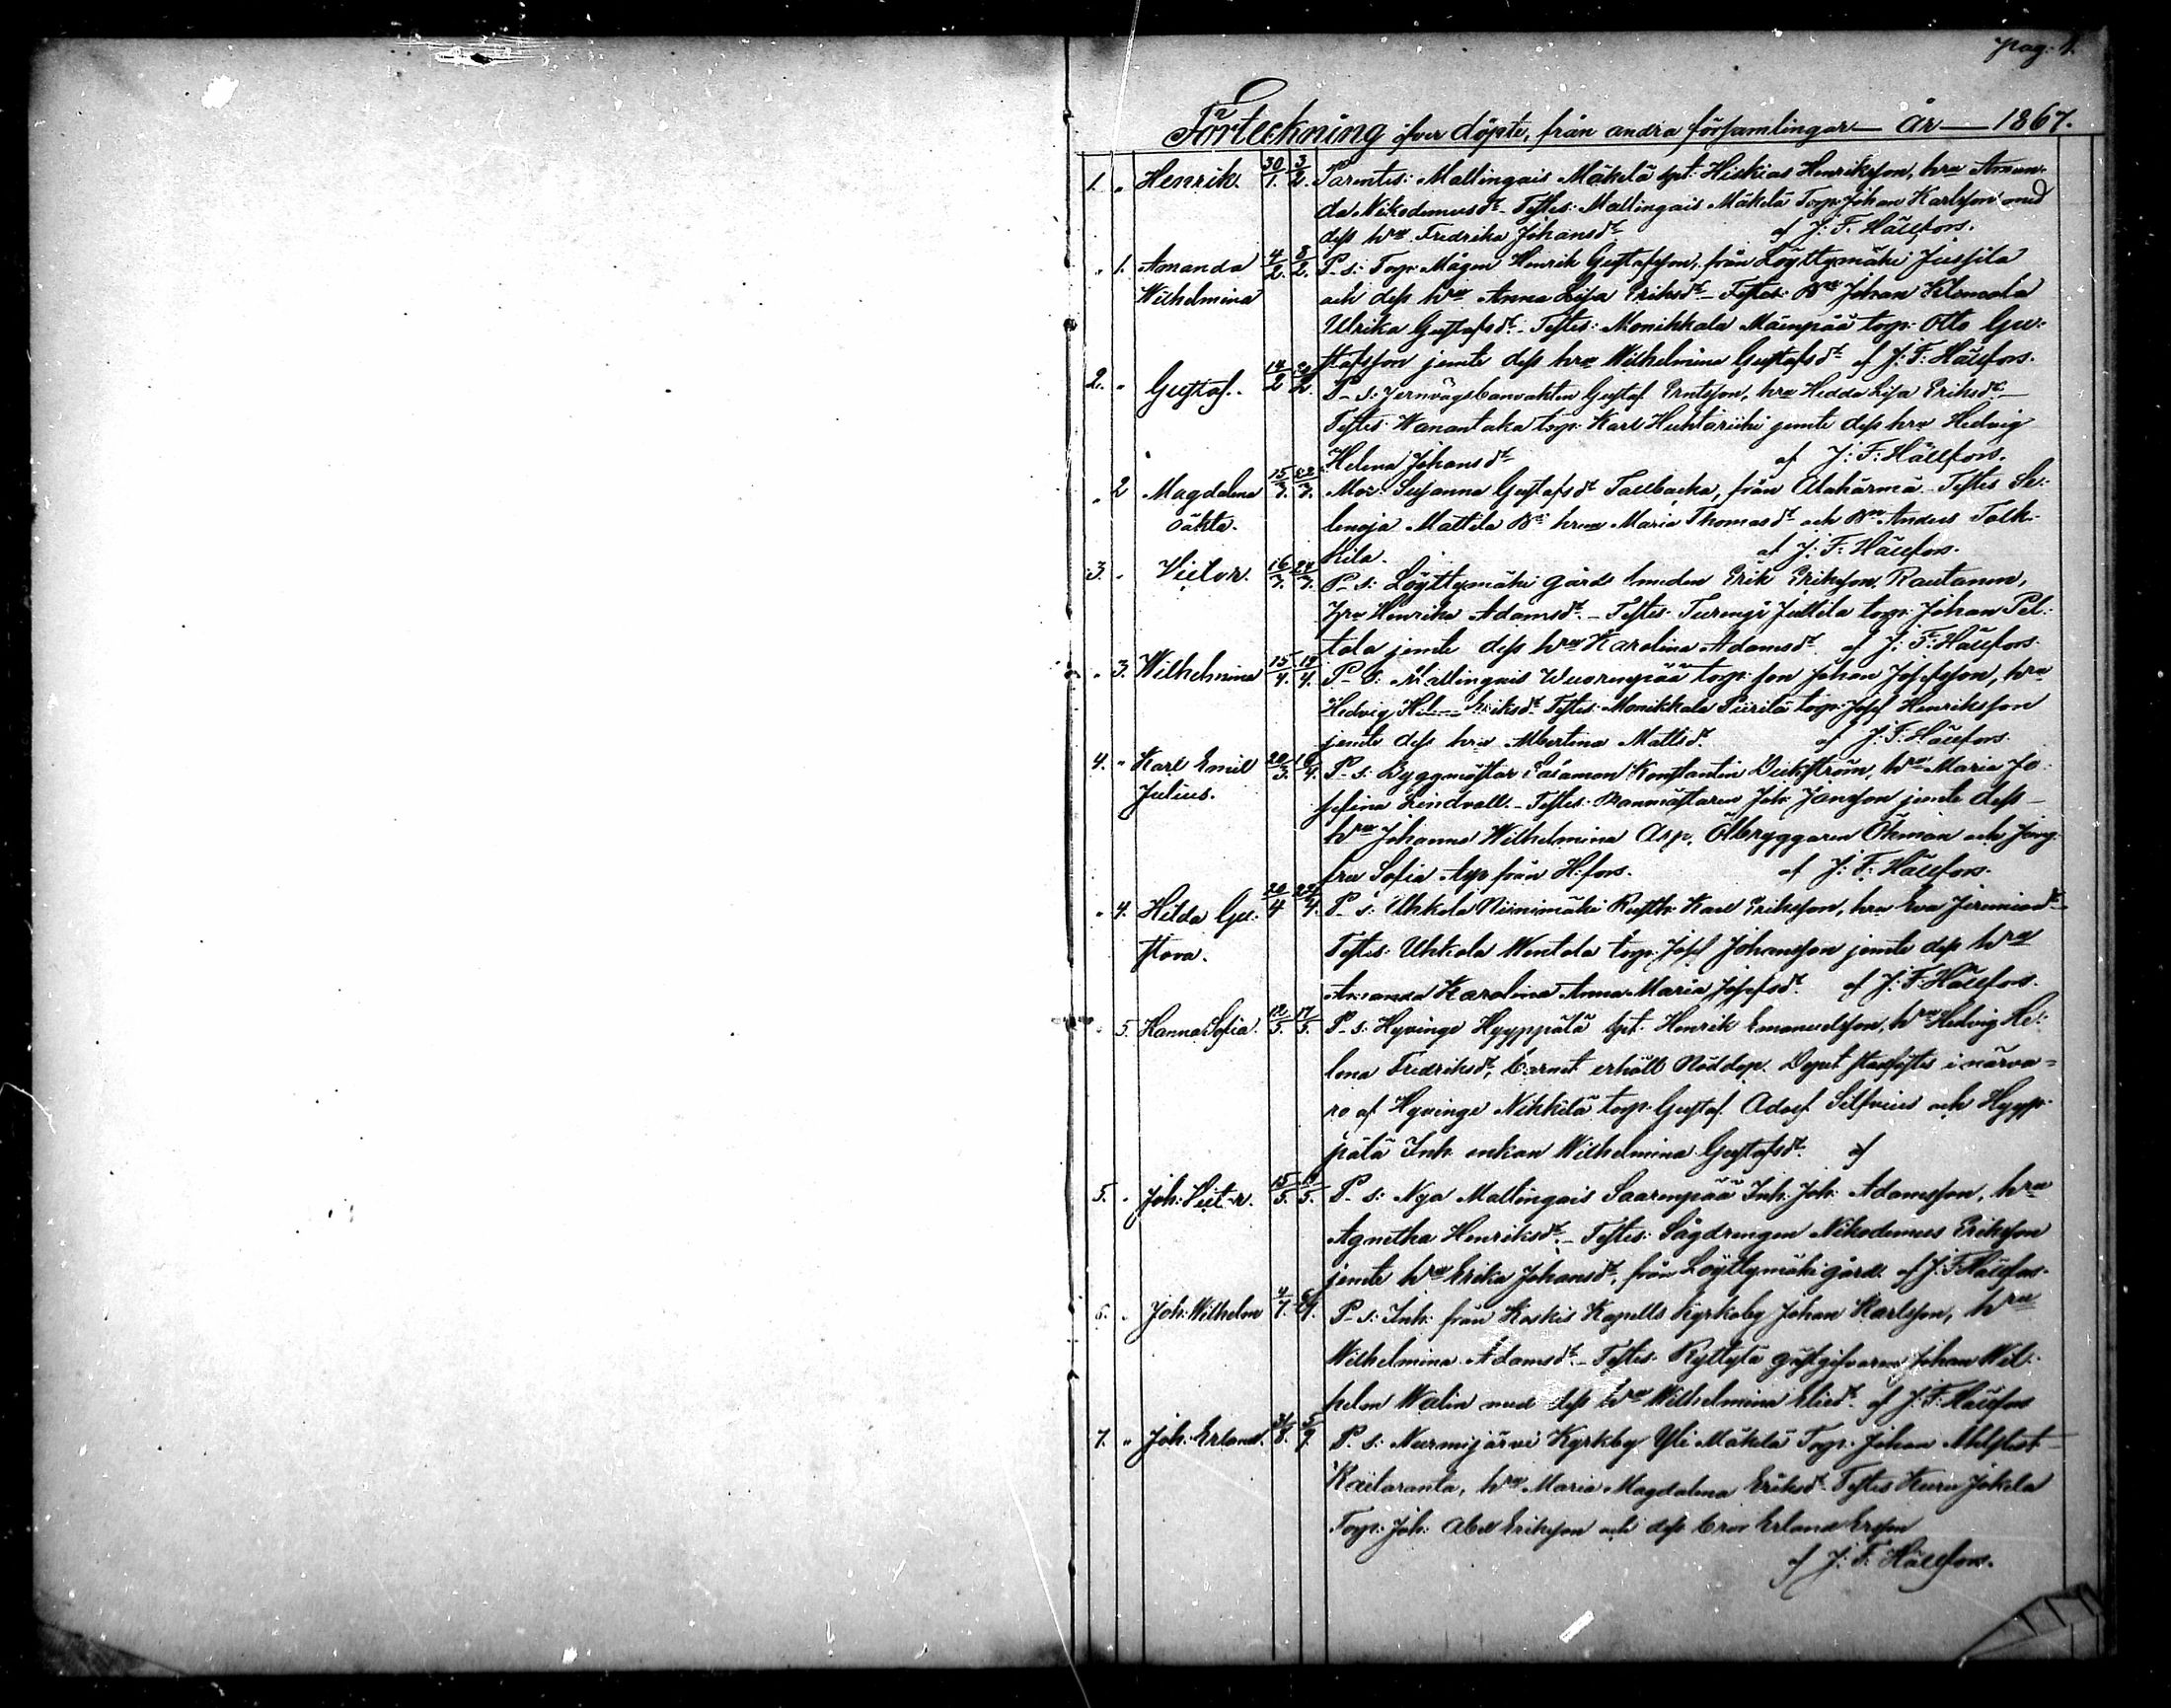 pag. 1.
Förteckning öfver döpte, från andra församlingar — År — 1867.
1. " Henrik. 30/1. 3/2. Parentes: Mallingais Mäkelä spt: Hiskias Henriksson, hru Aman-
da Nikodemusdr. - Testes: Mallingais Mäkelä Torp: Johan Karlsson med
dess hru Fredrika Johansdr af J: F: Hällfors.
" 1. Amanda 4/2. 8/2. P-s: Torp: Mågen Henrik Gustafsson, från Löyttymäki Jussila
Wilhelmina och dess hru Anna Lisa Eriksdr - Testes: Johan
Ulrika Gustafsdr - Testes: Monikkala Mäenpää torp: Otto Gu-
stafsson jemte dess hru Wilhelmina Gustafsdr af J: F: Hällfors.
2. " Gustaf. 14/2 20/2. P-s: Jernvägsbanvakten Gustaf Erntsson, hru Hedda Lisa Eriksdr -
Testes: Wanantaka torp: Karl Huhtariihi jemte dess hru Hedvig
Helena Johansdr af J: F: Hällfors.
" 2 Magdalena 15/3. 22/3. Mor: Susanna Gustafsdr Tallbacka, från Alahärmä - Testes Se-
oäkta. lenoja Mattila hru Maria Thomasdr och Anders Talk-
kila. af J: F: Hällfors.
3. " Victor. 16/3. 24/3. P-s: Löyttymäki gårds smeden Erik Eriksson Rautanen,
hru Henrika Adamsdr. - Testes: Turengi Juttila torp: Johan Pel-
tola jemte dess hru Karolina Adamsdr af J: F: Hällfors.
" 3. Wilhelmina 15/4. 19/4. P-s: Mallingais Wuorenpää torp: son Johan Josefsson, hru
Hedvig Eriksdr Testes: Monikkala Piirilä torp: Josef Henriksson
jemte dess hru Albertina Mattsd. af J: F: Hällfors.
4. " Karl Emil 20/3. P-s: Byggmästar Salamon Konstantin Vickström, hru Maria Jo-
Julius. sefina Lindvall. - Testes: Banmästaren Joh: Jansson jemte dess
hru Johanna Wilhelmina Asp, Ölbryggaren Öhman och Jung-
fru Sofia Asp från H:fors. af J: F: Hällfors.
" 4. Hilda Gu- 20/4 22/4. P-s: Uhkola Niinimäki Rusth: Karl Eriksson, hru Eva Jeremiasdr -
stava. Testes: Uhkola Wentola torp: Josef Johansson jemte dess hru
Amanda Karolina Anna Maria Josefsdr. af J: F: Hällfors.
" 5. Hanna Sofia. 12/5. 17/5. P-s: Hyvinge Hyyppälä spt: Henrik Emanuelsson, hru Hedvig He-
lena Fredriksdr, barnet erhöll Nöddop. Dopet stadfästes i närva-
ro af Hyvinge Nikkilä torp: Gustaf Adolf Silfvius och Hyyp-
pälä Inh: enkan Wilhelmina Gustafsdr. af
5. " Joh: Victor. 15/5. 19/5. P-s: Nya Mallingais Saarenpää Inh: Joh: Adamsson, hru
Agnetha Henriksdr - Testes: Sågdrengen Nikodemus Eriksson
jemte hru Erika Johansdr, från Löyttymäki gård. af J: F: Hällfors.
6. " Joh: Wilhelm 4/7. P-s: Inh: från Koskis Kapells Kyrkoby Johan Karlsson, hru
Wilhelmina Adamsdr. - Testes: Ryttylä gästgifvaren Johan Wil-
helm Walin med dess hru Wilhelmina Eliedr. af J: F: Hällfors
7. " Joh: Erland. 31/8. 5/9. P. s: Nurmijärvi Kyrkby Yli Mäkelä Torp: Johan Ahlqvist
Raitaranta, hru Maria Magdalena Eriksdr Testes Kuru Jokela
Torp: Joh: Abel Eriksson och dess bror Erland Ersson
af J: F: Hällfors.